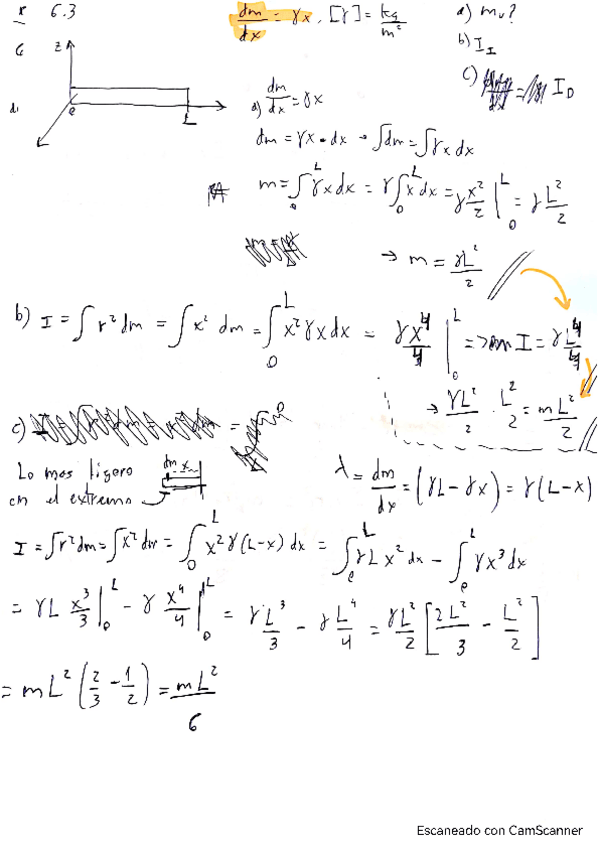 6.3
dm/dx = γx, [γ] = kg/m²
a) m_v?
b) I_I
c) I_D
z
e
L
a) dm/dx = γx
dm = γx · dx → ∫dm = ∫γx dx
m = ∫₀ᴸ γx dx = γ∫₀ᴸ x dx = γ x²/2 |₀ᴸ = γ L²/2
→ m = γL²/2
b) I = ∫ r² dm = ∫ x² dm = ∫₀ᴸ x² γx dx = γ x⁴/4 |₀ᴸ => I = γ L⁴/4
→ γL²/2 · L²/2 = m L²/2
c)
Lo mas ligero
en el extremo
dm x
λ = dm/dx = (γL - γx) = γ(L-x)
I = ∫r²dm = ∫x²dm = ∫₀ᴸ x² γ(L-x) dx = ∫₀ᴸ γL x² dx - ∫₀ᴸ γx³ dx
= γL x³/3 |₀ᴸ - γ x⁴/4 |₀ᴸ = γ L³/3 - γ L⁴/4 = γL²/2 [2L²/3 - L²/2]
= mL² (2/3 - 1/2) = mL²/6
Escaneado con CamScanner